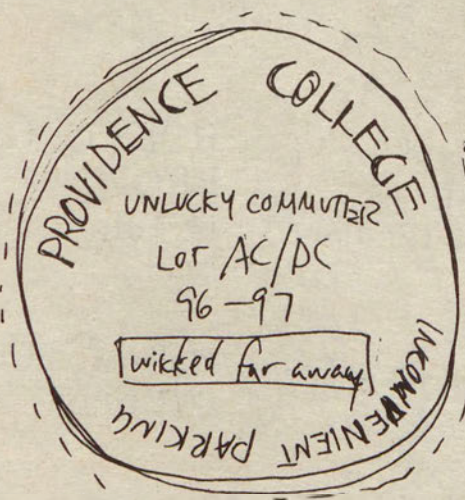 PROVIDENCE COLLEGE
UNLUCKY COMMUTER
LOT AC/DC
96-97
wikked far away
INCONVENIENT PARKING